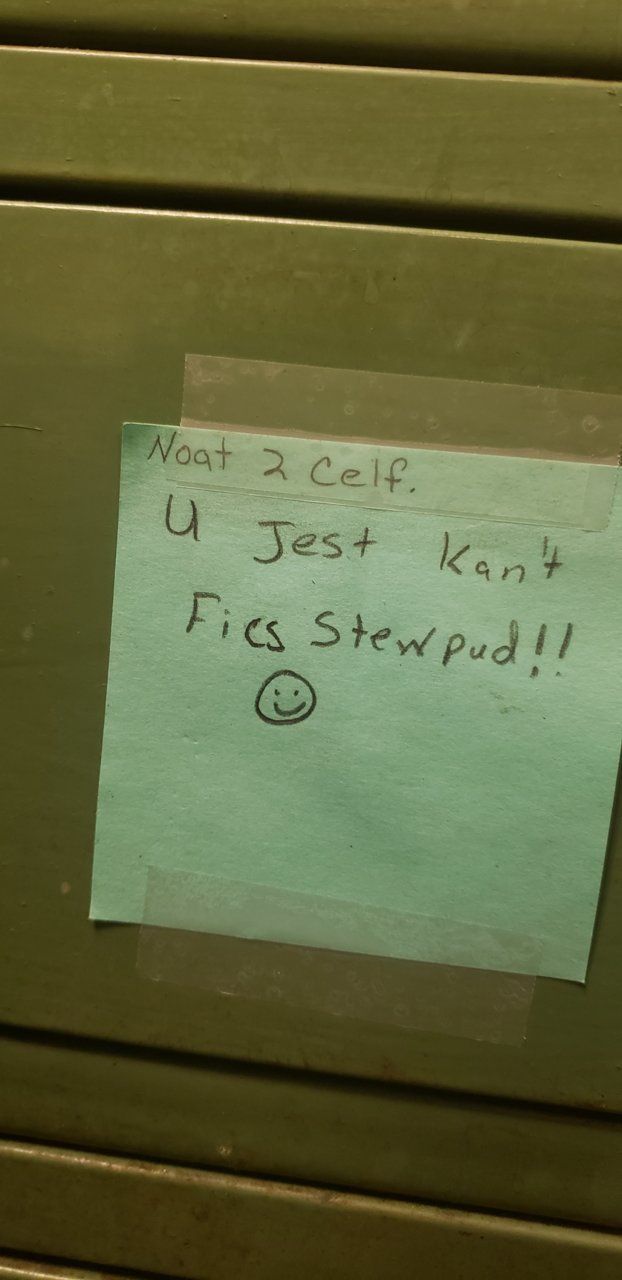 Noat 2 Celf.
U Jest Kan't
Fics Stewpud!!